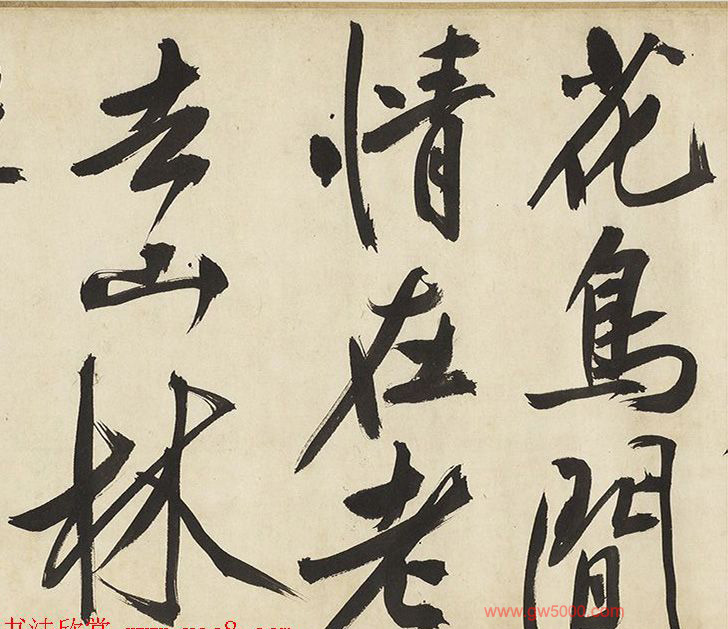 花鳥間
情在老
去山林
www.gw5000.com
书法欣赏